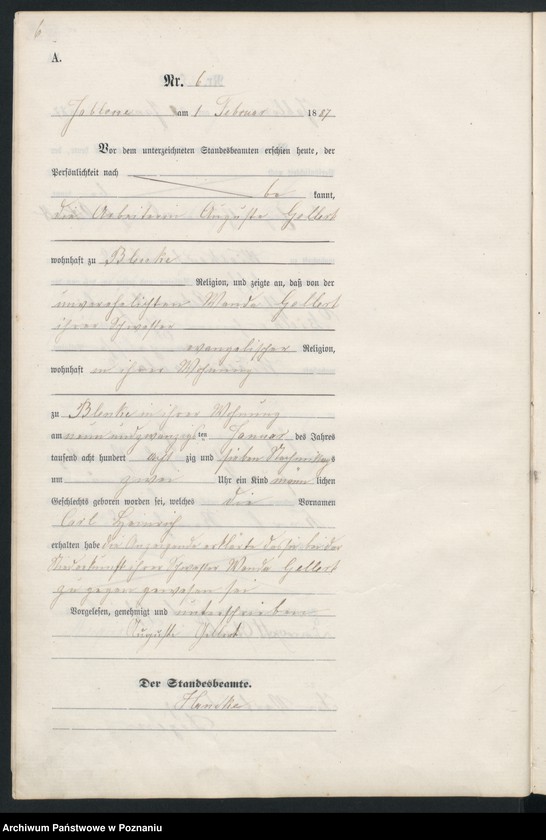 6
A.
Nr. 6
Jablone am 1 Februar 1887
Vor dem unterzeichneten Standesbeamten erschien heute, der
Persönlichkeit nach
be kannt,
die Arbeiterin Auguste Gellert
wohnhaft zu Blenke
Religion, und zeigte an, daß von der
unverehelichten Wanda Gellert
ihrer Schwester
evangelischer Religion,
wohnhaft in ihrer Wohnung
zu Blenke in ihrer Wohnung
am neun und zwanzigsten Januar des Jahres
tausend acht hundert acht zig und sieben Nachmittags
um zwei Uhr ein Kind männ lichen
Geschlechts geboren worden sei, welches die Vornamen
Carl Heinrich
erhalten habe die Anzeigende erklärte daß sie bei der
Niederkunft ihrer Schwester Wanda Gellert
zu gegen gewesen sei
Vorgelesen, genehmigt und unterschrieben
Auguste Gellert
Der Standesbeamte.
Archiwum Państwowe w Poznaniu